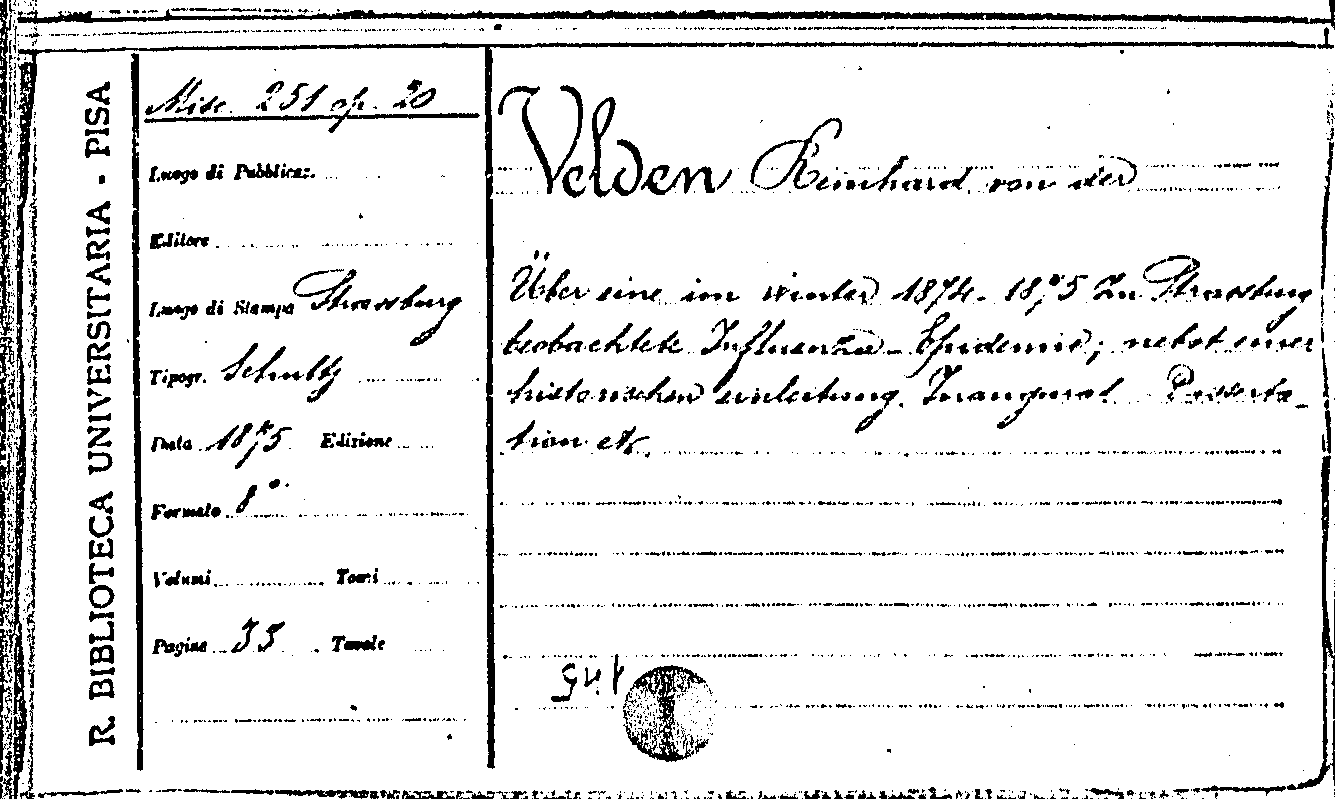 R. BIBLIOTECA UNIVERSITARIA - PISA
Misc. 251 op. 20
Luogo di Pubblicaz.
Editore
Luogo di Stampa Strassburg
Tipogr. Schultz
Data 1875 Edizione
Formato 8°
Volumi Tomi
Pagine 35 Tavole
Velden Reinhard von der
Über eine im Winter 1874-1875 zu Strassburg
beobachtete Influenza-Epidemie; nebst einer
historischen einleitung. Inaugural Disserta-
tion etc.